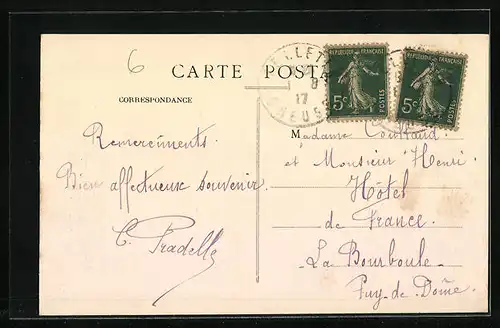 6
CARTE POSTA
CORRESPONDANCE
REPUBLIQUE FRANÇAISE
5c POSTES
REPUBLIQUE FRANÇAISE
5c POSTES
8
17
CREUSE
Remerciments.
Bien affectueux souvenir
C. Pradelle
Madame
et Monsieur Henri
Hôtel
de France.
La Bourboule
Puy-de-Dôme